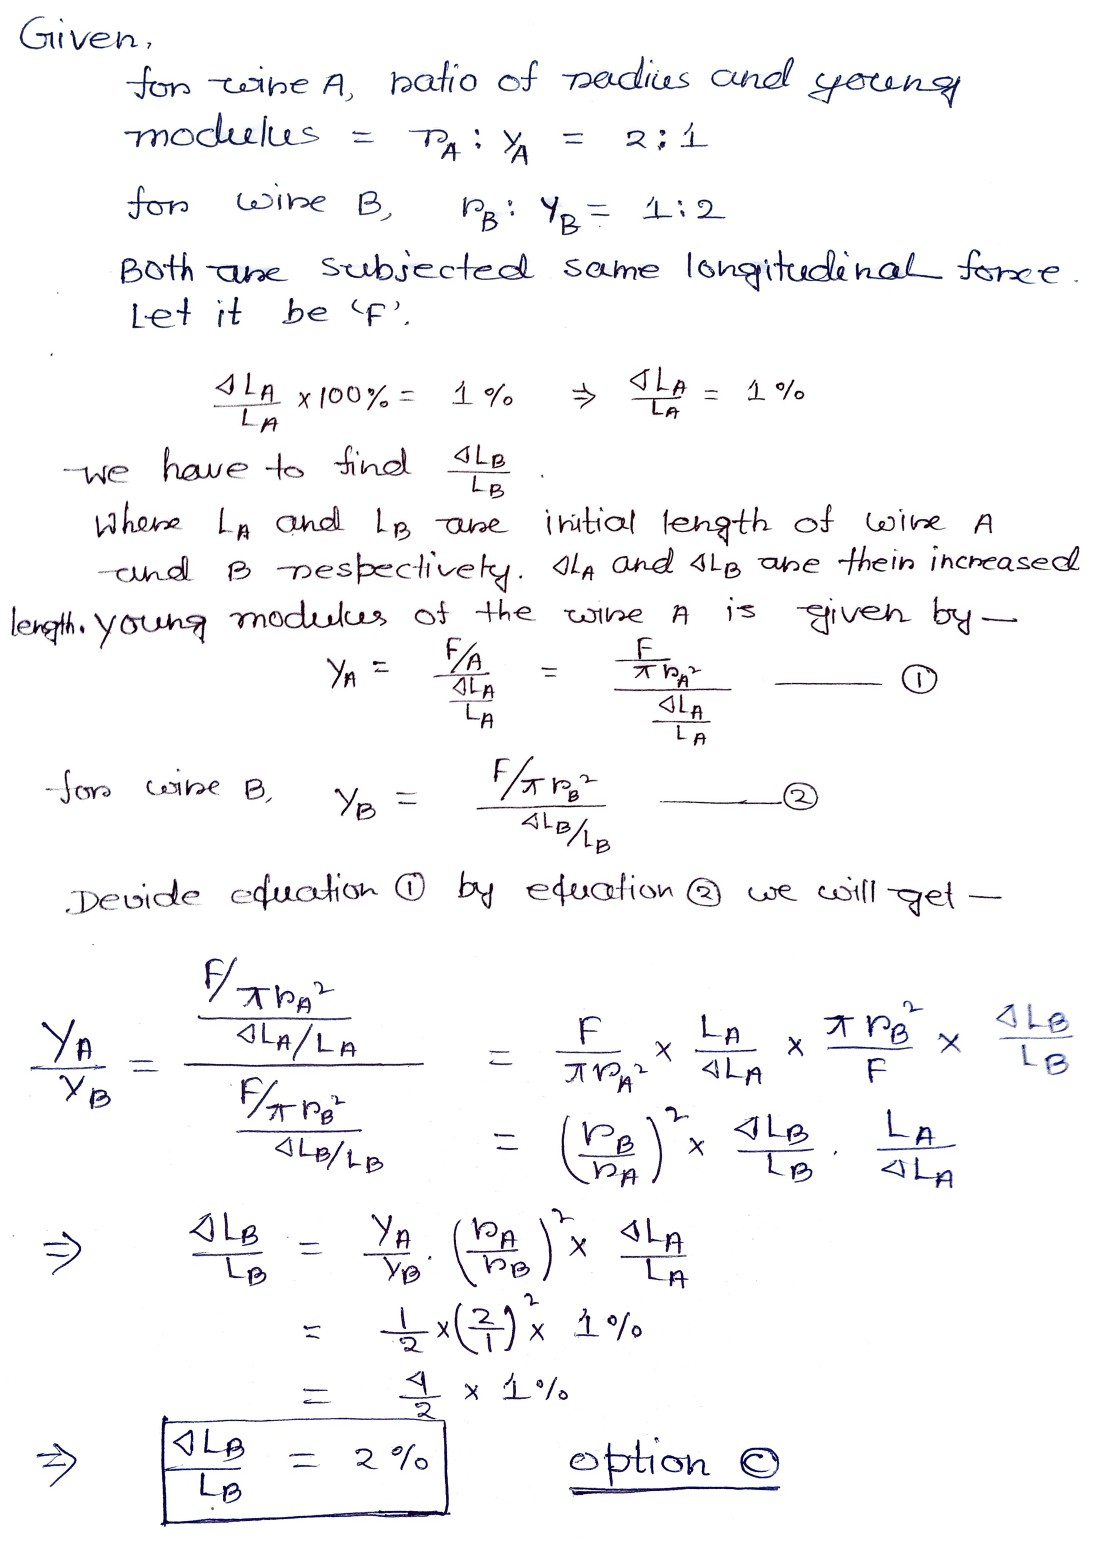 Given,
for wire A, ratio of radius and young
modulus = r_A : Y_A = 2 : 1
for wire B, r_B : Y_B = 1 : 2
Both are subjected same longitudinal force.
Let it be 'F'.
ΔL_A/L_A × 100% = 1% ⇒ ΔL_A/L_A = 1%
we have to find ΔL_B/L_B .
Where L_A and L_B are initial length of wire A
and B respectively. ΔL_A and ΔL_B are their increased
length. young modulus of the wire A is given by —
Y_A = (F/A)/(ΔL_A/L_A) = (F/πr_A²)/(ΔL_A/L_A) —— ①
for wire B, Y_B = (F/πr_B²)/(ΔL_B/L_B) —— ②
Devide equation ① by equation ② we will get —
Y_A/Y_B = ((F/πr_A²)/(ΔL_A/L_A))/((F/πr_B²)/(ΔL_B/L_B)) = F/πr_A² × L_A/ΔL_A × πr_B²/F × ΔL_B/L_B
= (r_B/r_A)² × ΔL_B/L_B . L_A/ΔL_A
⇒ ΔL_B/L_B = Y_A/Y_B . (r_A/r_B)² × ΔL_A/L_A
= 1/2 × (2/1)² × 1%
= 4/2 × 1%
⇒ ΔL_B/L_B = 2% option ⓒ